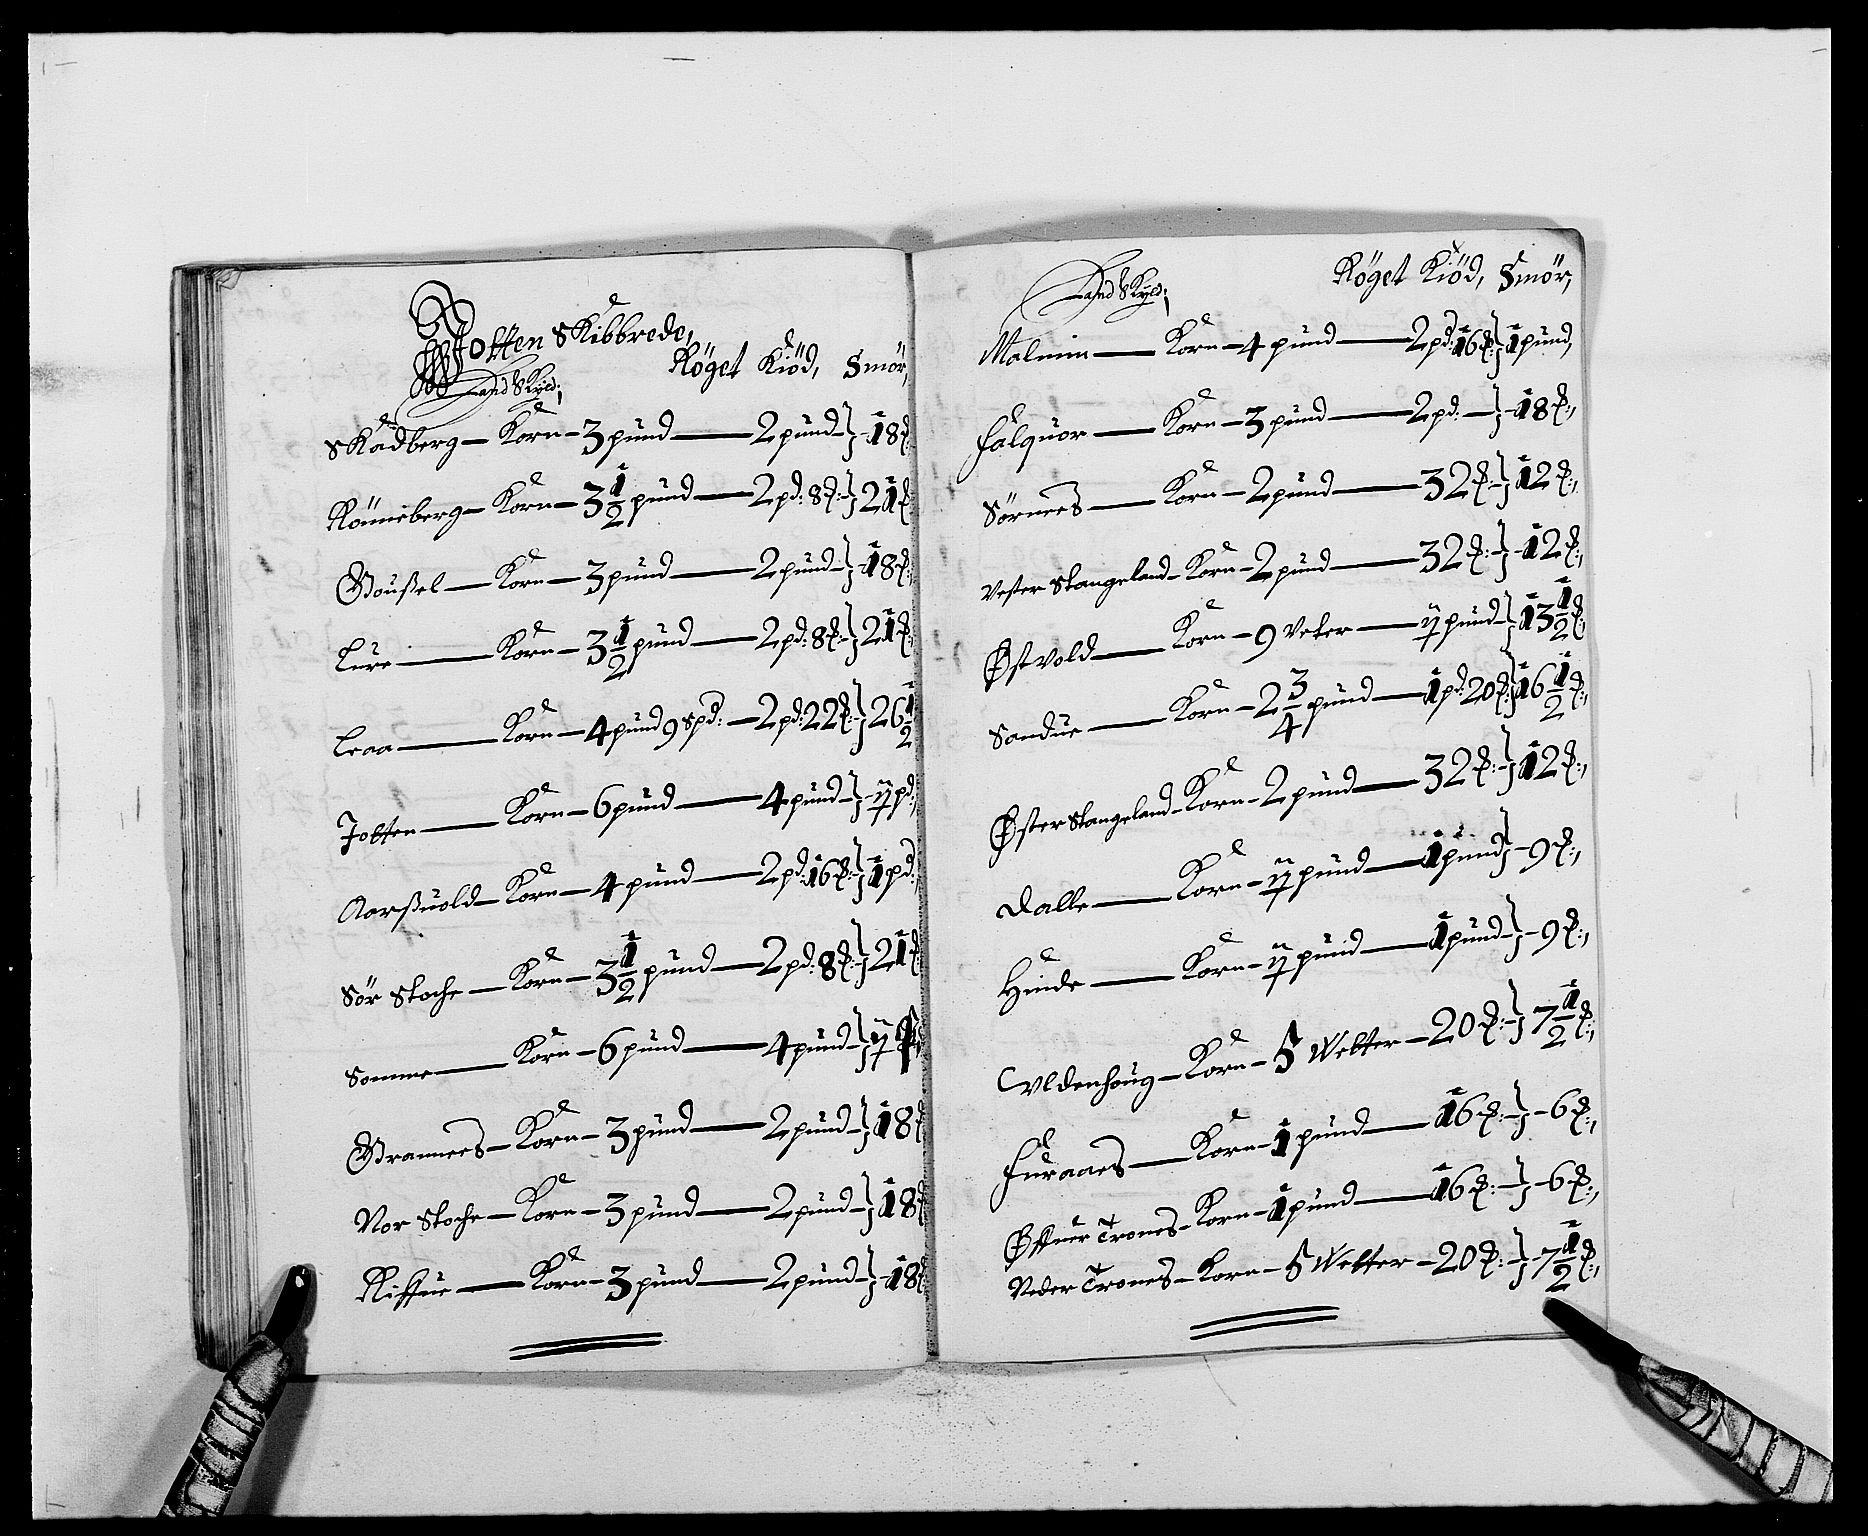 Jotten Skibbrede,
Röget Kiöd, Smör,
Land Skyld;
Skadberg — Korn — 3 pund — 2 pund — } — 18 ℔:,
Rönneberg — Korn — 3 1/2 pund — 2 pd: 8 ℔: — } 21 ℔:,
Goußel — Korn — 3 pund — 2 pund — } — 18 ℔:,
Lure — Korn — 3 1/2 pund — 2 pd: 8 ℔: — } 21 ℔:,
Leaa — Korn — 4 pund 9 Spd: — 2 pd: 22 ℔: — } 26 1/2
Jotten — Korn — 6 pund — 4 pund — } — ij pd:,
Aarßuold — Korn — 4 pund — 2 pd: 16 ℔: — } 1 pd:,
Sör Stoche — Korn — 3 1/2 pund — 2 pd: 8 ℔: — } 21 ℔:,
Somme — Korn — 6 pund — 4 pund — } ij
Grannees — Korn — 3 pund — 2 pund — } 18 ℔
Nor Stoche — Korn — 3 pund — 2 pund — } 18 ℔
Riffue — Korn — 3 pund — 2 pund — } — 18 ℔
Röget Kiöd, Smör,
Land Skyld;
Malmim — Korn — 4 pund — 2 pd: 16 ℔: } 1 pund,
Falquor — Korn — 3 pund — 2 pd: — } — 18 ℔:,
Sörnees — Korn — 2 pund — 32 ℔: — } 12 ℔:,
Vester Stangeland — Korn — 2 pund — 32 ℔: — } — 12 ℔:,
Østvold — Korn — 9 Veter — ij pund — } 13 1/2 ℔:,
Sandue — Korn — 2 3/4 pund — 1 pd: 20 ℔: } 16 1/2 ℔:,
Øster Stangeland — Korn — 2 pund — 32 ℔: — } 12 ℔:,
Dalle — Korn — ij pund — 1 pund } — 9 ℔:,
Hinde — Korn — ij pund — 1 pund — } — 9 ℔:,
Vldenhoug — Korn — 5 Wetter — 20 ℔: — } 7 1/2 ℔:,
Furaaes — Korn — 1 pund — 16 ℔: — } — 6 ℔:,
Øffuer Trones — Korn — 1 pund — 16 ℔: — } — 6 ℔:,
Neder Trones — Korn — 5 Wetter — 20 ℔: — } — 7 1/2 ℔:,